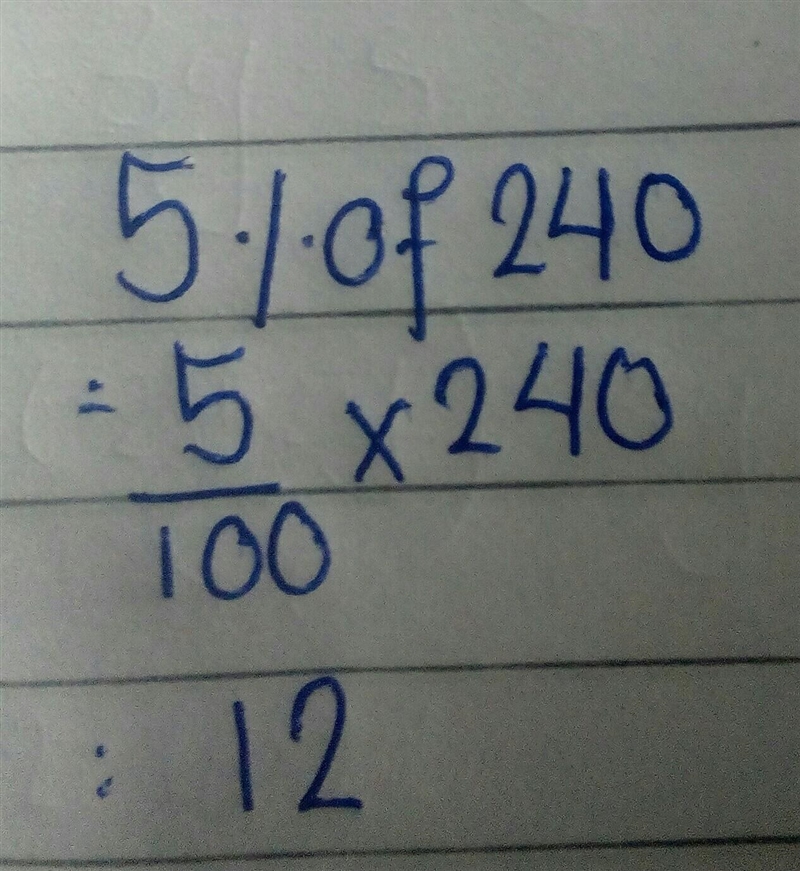 5 % of 240
= 5/100 x 240
: 12